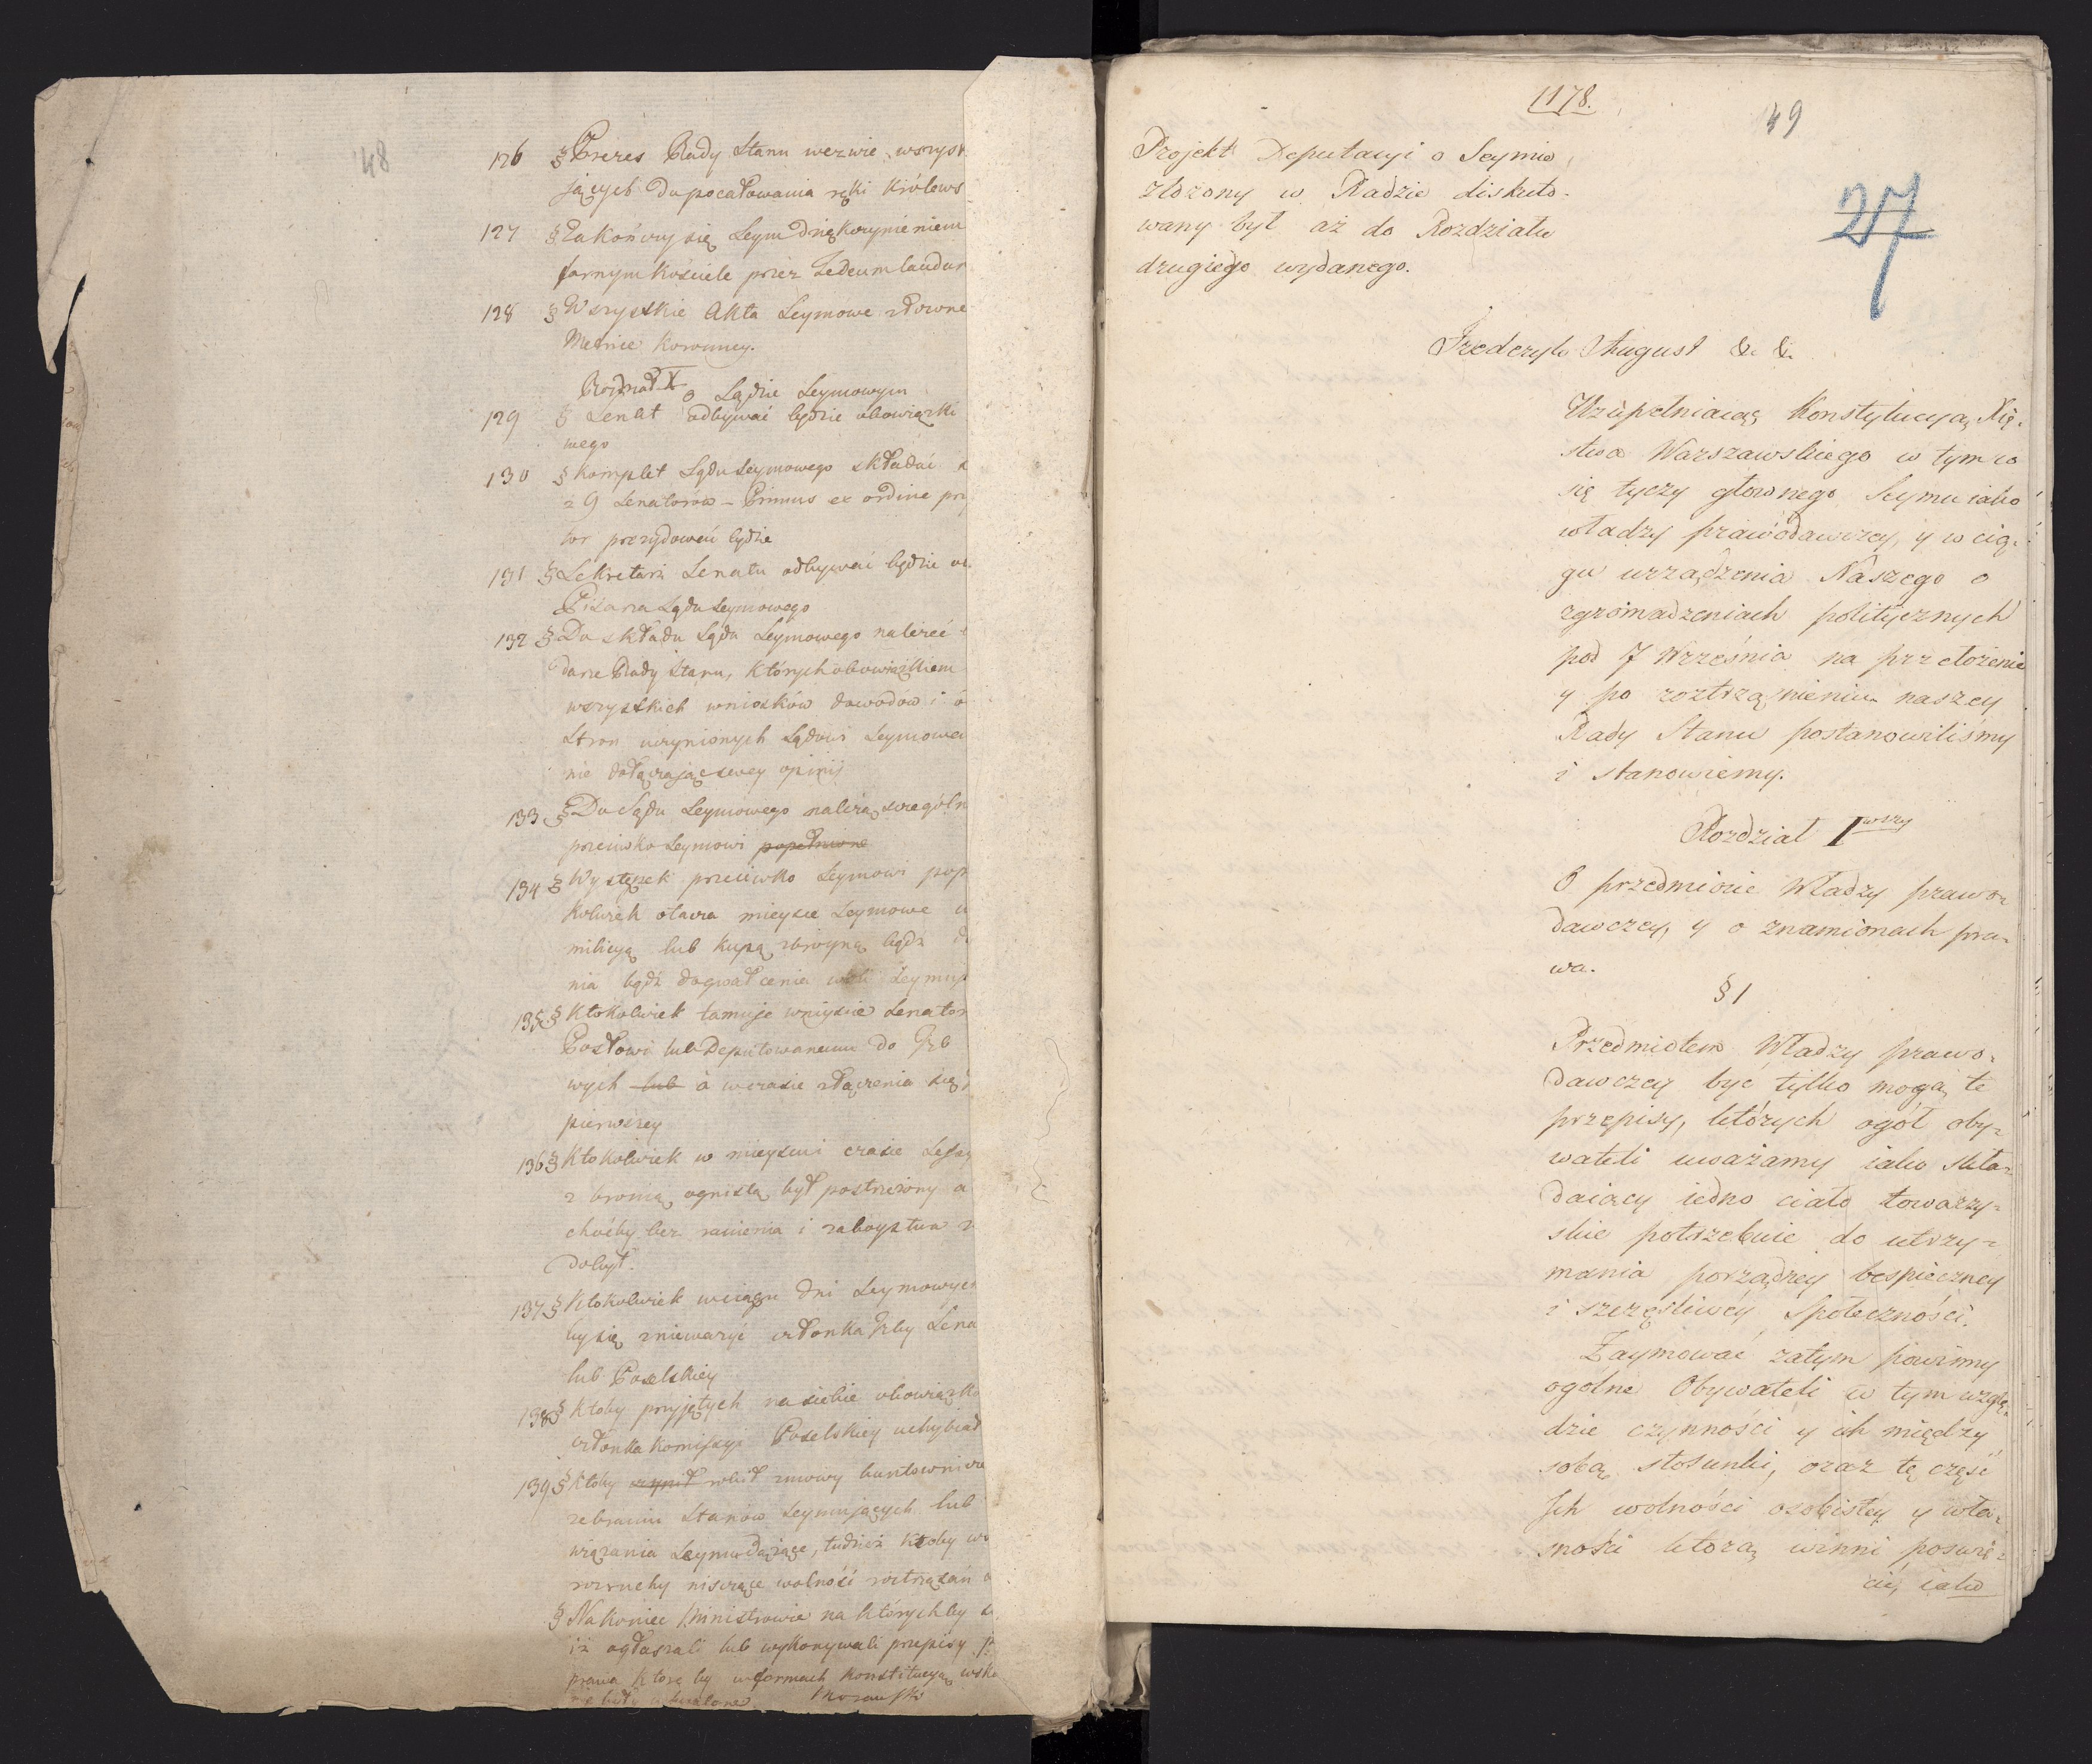 48
126 § Prezes Rady Stanu wezwie wszyst
jących do pocałowania ręki Królews
127 § Zakończy się Seym dziękczynieniem
farnym Kościele przez Te deum laudam
128 § Wszystkie Akta Seymowe złożone
Metrice Koronney.
Rozdział X o Sądzie Seymowym
129 § Senat odbywać będzie obowiązki
wego
130 § Komplet Sądu Seymowego składać
z 9 Senatorów – Primus ex ordine
tor prezydować będzie
131 § Sekretarz Senatu odbywać będzie
Pisarza Sądu Seymowego
132 § Do składu Sądu Seymowego należeć
darze Rady Stanu, których obowiązkiem
wszystkich wniosków dowodów i o
Stron uczynionych Sądowi Seymowe
nie dołączając swey opinij
133 § Do Sądu Seymowego należą szczególn
przeciwko Seymowi popełnione
134 § Występek przeciwko Seymowi pop
kolwiek otacza mieysce Seymowe
milicyą lub kupą zbroyną bądź d
nia bądź dogwałcenia woli Seymu
135 § Ktokolwiek tamuje wniyscie Senator
Posłowi lub Deputowanemu do Izb
wych lub a w czasie złączenia się
pierwszey
136 § Ktokolwiek w mieyscu i czasie
z bronią ognistą był postrzeżony a
choćby bez ranienia i zaboystwa
dobył.
137 § Ktokolwiek w ciągu dni Seymowych
by się znieważyć członka Izby Sena
lub Poselskiey
138 § Ktoby przyjętych na siebie obowiązkó
członka Komissyi Poselskiey uchybiał
139 § Ktoby czynił robił zmowy buntownicze
zebraniu Stanów Seymujących lub
wiązania Seymu dążące, tudzież Ktoby
rozruchy niszczące wolność roztrząsań
§ Nakoniec Ministrowie na którychby
iż ogłaszali lub wykonywali przepisy
prawa które by w formach Konstitucyą wska
nie były uchwalone.
1178.
49
27
Projekt Deputacyi o Seymie
złożony w Radzie diskuto-
wany był aż do Rozdziału
drugiego wydanego.
Frederyk August &. &.
Uzupełniaiąc Konstytucyą Xię-
stwa Warszawskiego w tym co
się tyczy głownego Seymu iako
władzy prawodawczey, y w cią-
gu urządzenia Naszego o
zgromadzeniach politycznych
pod 7 Września na przełożenie
y po roztrząśnieniu naszey
Rady Stanu postanowiliśmy
i stanowiemy.
Rozdział Iwszy
O przedmiocie Władzy prawo-
dawczey, y o znamionach pra-
wa.
§ 1
Przedmiotem Władzy prawo-
dawczey być tylko mogą te
przepisy, których ogół oby-
wateli uważamy iako skła-
daiący iedno ciało towarzy-
skie potrzebuie do utrzy-
mania porządney bespieczney
i szczęśliwey Społeczności.
Zaymować zatym powinny
ogolne Obywateli w tym wzglę-
dzie czynności y ich między
sobą stosunki, oraz tę część
Ich wolności osobistey y wła-
sności ktorą winni poświę-
cić, iako